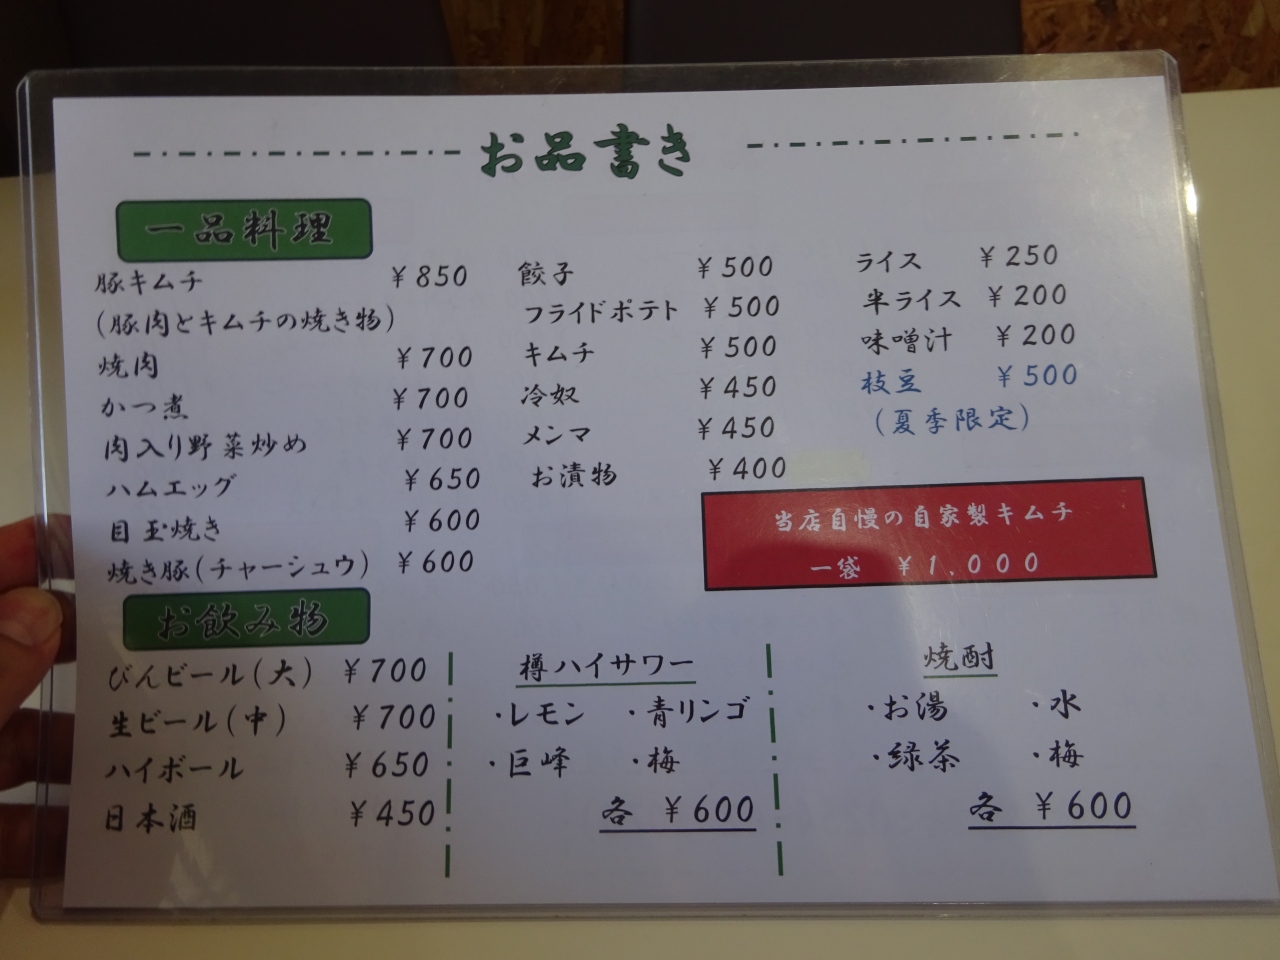 お品書き
一品料理
豚キムチ ¥850
(豚肉とキムチの焼き物)
焼肉 ¥700
かつ煮 ¥700
肉入り野菜炒め ¥700
ハムエッグ ¥650
目玉焼き ¥600
焼き豚(チャーシュウ) ¥600
餃子 ¥500
フライドポテト ¥500
キムチ ¥500
冷奴 ¥450
メンマ ¥450
お漬物 ¥400
ライス ¥250
半ライス ¥200
味噌汁 ¥200
枝豆 ¥500
(夏季限定)
当店自慢の自家製キムチ
一袋 ¥1,000
お飲み物
びんビール(大) ¥700
生ビール(中) ¥700
ハイボール ¥650
日本酒 ¥450
樽ハイサワー
・レモン ・青リンゴ
・巨峰 ・梅
各 ¥600
焼酎
・お湯 ・水
・緑茶 ・梅
各 ¥600